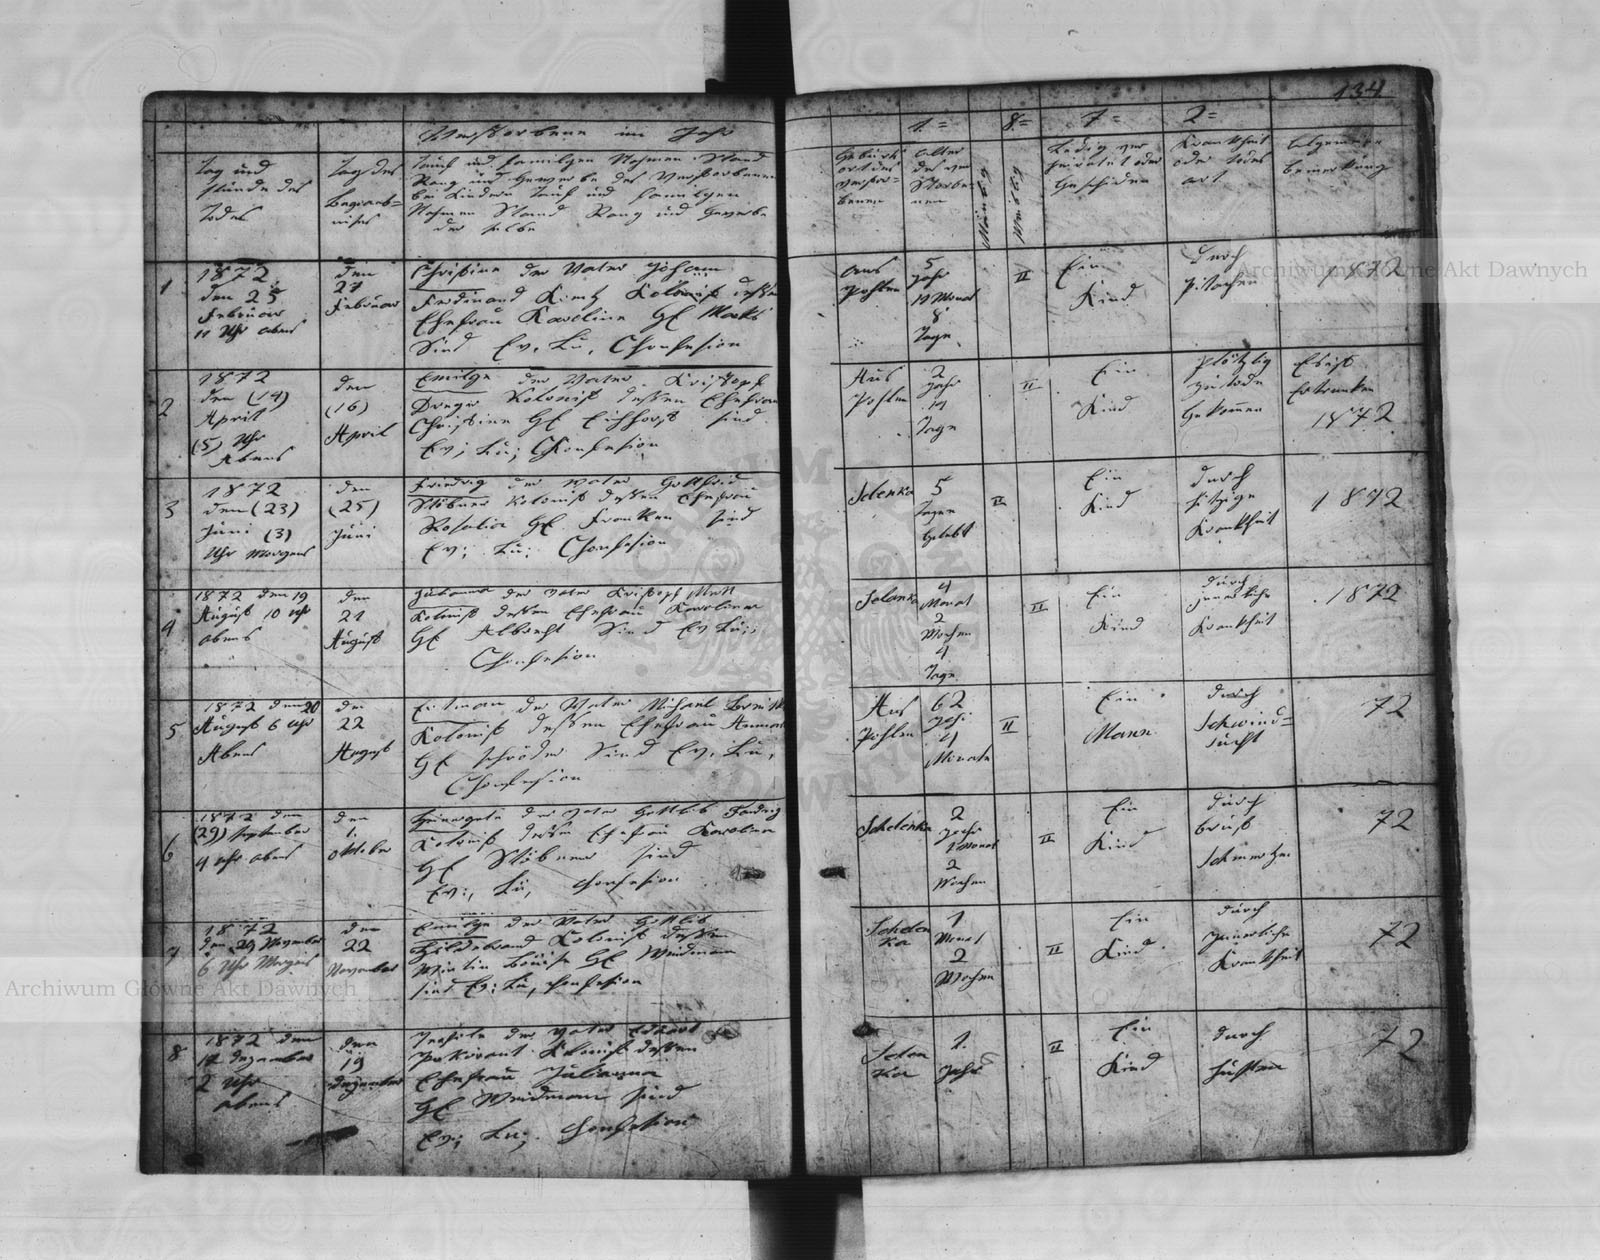 134
Verstorbene im Jahr
1.= 8.= 7= 2=
Tag und
stunde des
Todes
Tag des
Begräb=
nises
Tauf und familgen Nahmen Stand
Rang und Gewerbe des Verstorbenen
bei Kindern Tauf und familgen
Nahmen Stand Rang und Gewerbe
der selbe
Geburts
ort des
verstor=
benen
Alter
des ver
storbe=
nen
Mänlig
Weiblig
Ledig ver
heiratet oder
Geschiden
Krankheit
oder todes
art
Algemeine
bemerkung
1
1872
den 25
Februar
11 Uhr abens
den
27
Februar
Christine der Vater Johann
Ferdinand Kolonist dessen
Ehefrau Karoline G
Sind Ev. Lu, Chonfesion
aus
Pohlen
5
Jahr
10 Monat
8
Tage
II
Ein
Kind
durch
1872
2
1872
den (14)
April
(5) Uhr
Abens
den
(16)
April
Emilge der Vater Kristopf
Dreger Kolonist dessen Ehefrau
Christine G Eichhorst sind
Ev; Lu; Chonfesion
Aus
Pohlen
2
Jahr
Tage
II
Ein
Kind
Plötzlig
zu tode
gekommen
Es ist
Ertrunken
1872
3
1872
den (23)
Juni (3)
Uhr Morgens
den
(25)
Juni
Friedrig der Vater Gottfrid
Stübner Kolonist dessen Ehefrau
Rosalia G Franken sind
Ev; Lu; Chonfesion
Selenka
5
Tagen
Gelebt
II
Ein
Kind
durch
hitzige
Krankheit
1872
4
1872 den 19
August 10 Uhr
abens
den
21
August
Julianna der Vater Kristopf
Kolonist dessen Ehefrau Karoline
G Albrecht Sind Ev Lu;
Chonfesion
Selenka
4
Monat
2
Wochen
4
Tage
II
Ein
Kind
durch
innerliche
Krankheit
1872
5
1872 den 20
August 6 Uhr
Abens
den
22
August
Ertman der Vater Michael
Kolonist dessen Ehefrau
G schröder Sind Ev. Lu,
Chonfesion
Aus
Pohlen
62
Jahr
4
Monate
II
Ein
Mann
durch
Schwind=
sucht
72
6
1872 den
(29) september
4 Uhr abens
den
1.
oktober
der Vater Gottlib
Kolonist dessen Ehefrau Karoline
G Stübner sind
Ev:, Lu, Chonfesion
Schelenka
2
Jahr
1 Monat
2
Wochen
II
Ein
Kind
durch
brust
Schmertzen
72
7
1872
den 20 November
6 Uhr Morgens
den
22
November
Emilge der Vater Gottlib
Hildebrand Kolonist dessen
Wirtin G Weidmann
sind Ev: Lu, chonfesion
Schelen
ka
1
Monat
2
Wochen
II
Ein
Kind
durch
innerliche
Krankheit
72
8
1872 den
17 dezember
2 Uhr
abens
den
19
dezember
der Vater Eduart
Kolonist dessen
Ehefrau Julianna
G Weidmann sind
Ev; Lu; Chonfesion
Selen
ka
1.
Jahr
II
Ein
Kind
durch
husten
72
Archiwum Główne Akt Dawnych
Archiwum Główne Akt Dawnych